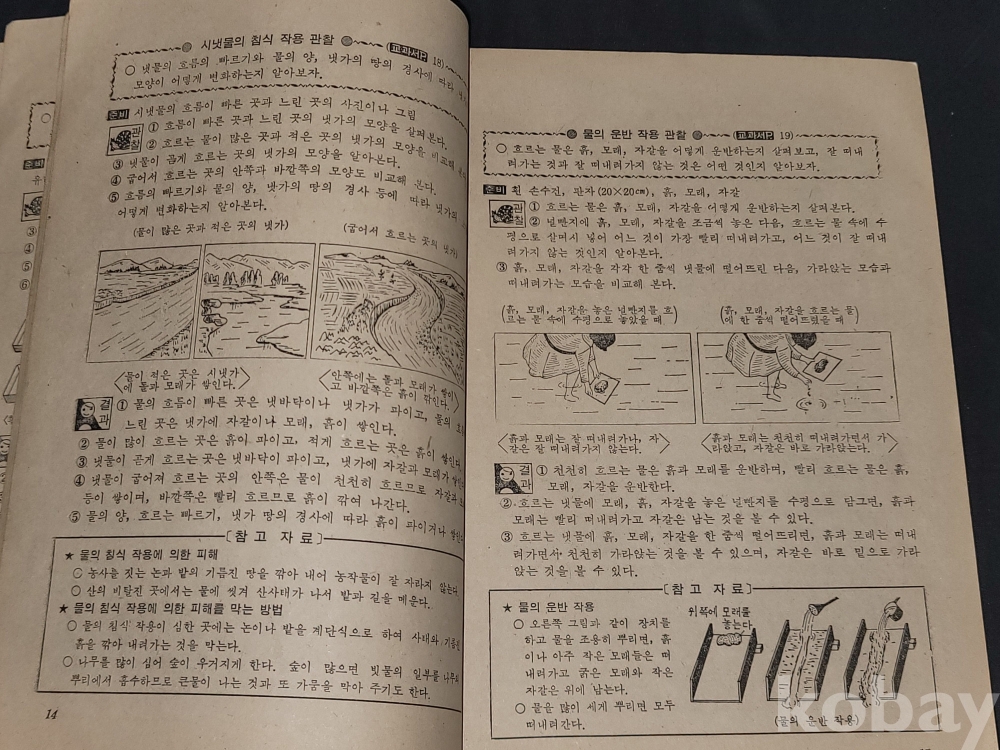 시냇물의 침식 작용 관찰 (교과서P. 18)
○ 냇물의 흐름의 빠르기와 물의 양, 냇가의 땅의 경사에 따라
모양이 어떻게 변화하는지 알아보자.
준비 시냇물의 흐름이 빠른 곳과 느린 곳의 사진이나 그림
관찰 ① 흐름이 빠른 곳과 느린 곳의 냇가의 모양을 살펴본다.
② 흐르는 물이 많은 곳과 적은 곳의 냇가의 모양을 비교해
③ 냇물이 곧게 흐르는 곳의 냇가의 모양을 알아본다.
④ 굽어서 흐르는 곳의 안쪽과 바깥쪽의 모양도 비교해 본다.
⑤ 흐름의 빠르기와 물의 양, 냇가의 땅의 경사 등에 따라 냇가의
어떻게 변화하는지 알아본다.
(물이 많은 곳과 적은 곳의 냇가)
(굽어서 흐르는 곳의 냇가)
<물이 적은 곳은 시냇가
에 돌과 모래가 쌓인다.>
<안쪽에는 돌과 모래가 쌓이
고 바깥쪽은 흙이 깎인다.>
결과 ① 물의 흐름이 빠른 곳은 냇바닥이나 냇가가 파이고, 물의
느린 곳은 냇가에 자갈이나 모래, 흙이 쌓인다.
② 물이 많이 흐르는 곳은 흙이 파이고, 적게 흐르는 곳은 흙이 쌓인다
③ 냇물이 곧게 흐르는 곳은 냇바닥이 파이고, 냇가에 자갈과 모래가 쌓인
④ 냇물이 굽어져 흐르는 곳의 안쪽은 물이 천천히 흐르므로 자갈과
등이 쌓이며, 바깥쪽은 빨리 흐르므로 흙이 깎여 나간다.
⑤ 물의 양, 흐르는 빠르기, 냇가 땅의 경사에 따라 흙이 파이거나 쌓인
[참고 자료]
★ 물의 침식 작용에 의한 피해
○ 농사를 짓는 논과 밭의 기름진 땅을 깎아 내어 농작물이 잘 자라지 않는다.
○ 산의 비탈진 곳에서는 물에 씻겨 산사태가 나서 밭과 길을 메운다.
★ 물의 침식 작용에 의한 피해를 막는 방법
○ 물의 침식 작용이 심한 곳에는 논이나 밭을 계단식으로 하여 사태와 기름진
흙을 깎아 내려가는 것을 막는다.
○ 나무를 많이 심어 숲이 우거지게 한다. 숲이 많으면 빗물의 일부를 나무의
뿌리에서 흡수하므로 큰물이 나는 것과 또 가뭄을 막아 주기도 한다.
14
물의 운반 작용 관찰 (교과서P. 19)
○ 흐르는 물은 흙, 모래, 자갈을 어떻게 운반하는지 살펴보고, 잘 떠내
려가는 것과 잘 떠내려가지 않는 것은 어떤 것인지 알아보자.
준비 흰 손수건, 판자(20×20cm), 흙, 모래, 자갈
관찰 ① 흐르는 물은 흙, 모래, 자갈을 어떻게 운반하는지 살펴본다.
② 널빤지에 흙, 모래, 자갈을 조금씩 놓은 다음, 흐르는 물 속에 수
평으로 살며시 넣어 어느 것이 가장 빨리 떠내려가고, 어느 것이 잘 떠내
려가지 않는 것인지 알아본다.
③ 흙, 모래, 자갈을 각각 한 줌씩 냇물에 떨어뜨린 다음, 가라앉는 모습과
떠내려가는 모습을 비교해 본다.
(흙, 모래, 자갈을 놓은 널빤지를 흐
르는 물 속에 수평으로 놓았을 때)
(흙, 모래, 자갈을 흐르는 물
에 한 줌씩 떨어뜨렸을 때)
<흙과 모래는 잘 떠내려가나, 자
갈은 잘 떠내려가지 않는다.>
<흙과 모래는 천천히 떠내려가면서 가
라앉고, 자갈은 바로 가라앉는다.>
결과 ① 천천히 흐르는 물은 흙과 모래를 운반하며, 빨리 흐르는 물은 흙,
모래, 자갈을 운반한다.
② 흐르는 냇물에 모래, 흙, 자갈을 놓은 널빤지를 수평으로 담그면, 흙과
모래는 빨리 떠내려가고 자갈은 남는 것을 볼 수 있다.
③ 흐르는 냇물에 흙, 모래, 자갈을 한 줌씩 떨어뜨리면, 흙과 모래는 떠내
려가면서 천천히 가라앉는 것을 볼 수 있으며, 자갈은 바로 밑으로 가라
앉는 것을 볼 수 있다.
[참고 자료]
★ 물의 운반 작용
○ 오른쪽 그림과 같이 장치를
하고 물을 조용히 뿌리면, 흙
이나 아주 작은 모래들은 떠
내려가고 굵은 모래와 작은
자갈은 위에 남는다.
○ 물을 많이 세게 뿌리면 모두
떠내려간다.
위쪽에 모래를
놓는다.
(물의 운반 작용)
kobay